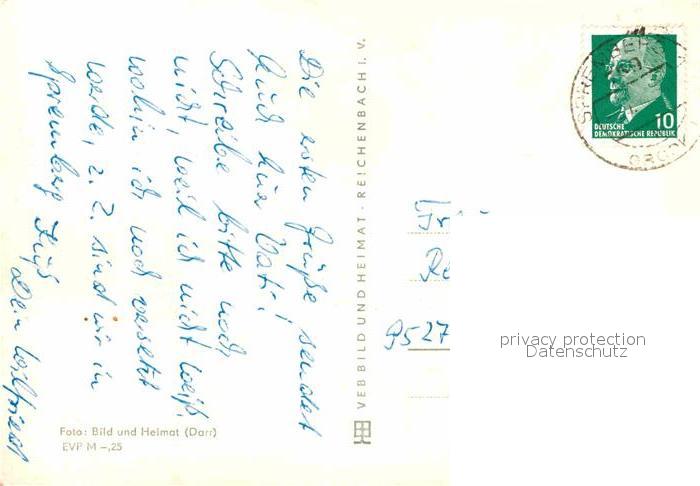 Die ersten Grüße sendet
Euch Eur Vati!
Schreibe bitte noch
nicht, weil ich nicht weiß,
wohin ich noch versetzt
werde, z. Z. sind wir in
Spremberg Kuß
Dein Wilfried
VEB BILD UND HEIMAT · REICHENBACH I. V.
Foto: Bild und Heimat (Darr)
EVP M –,25
SPREMBERG
GRODK
10
DEUTSCHE
DEMOKRATISCHE REPUBLIK
9527
privacy protection
Datenschutz